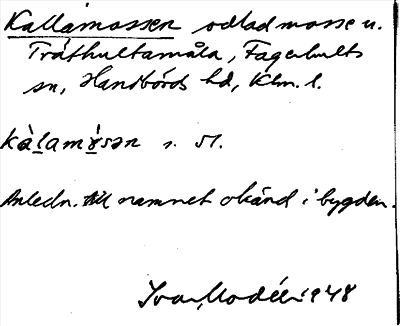 Kallamossen odlad mosse u.
Tråthultamåla, Fagerhults
sn, Handbörds hd, Klm. l.
kàlamɤ́sən s. st.
Anledn. till namnet okänd i bygden.
Ivar Modéer 1948